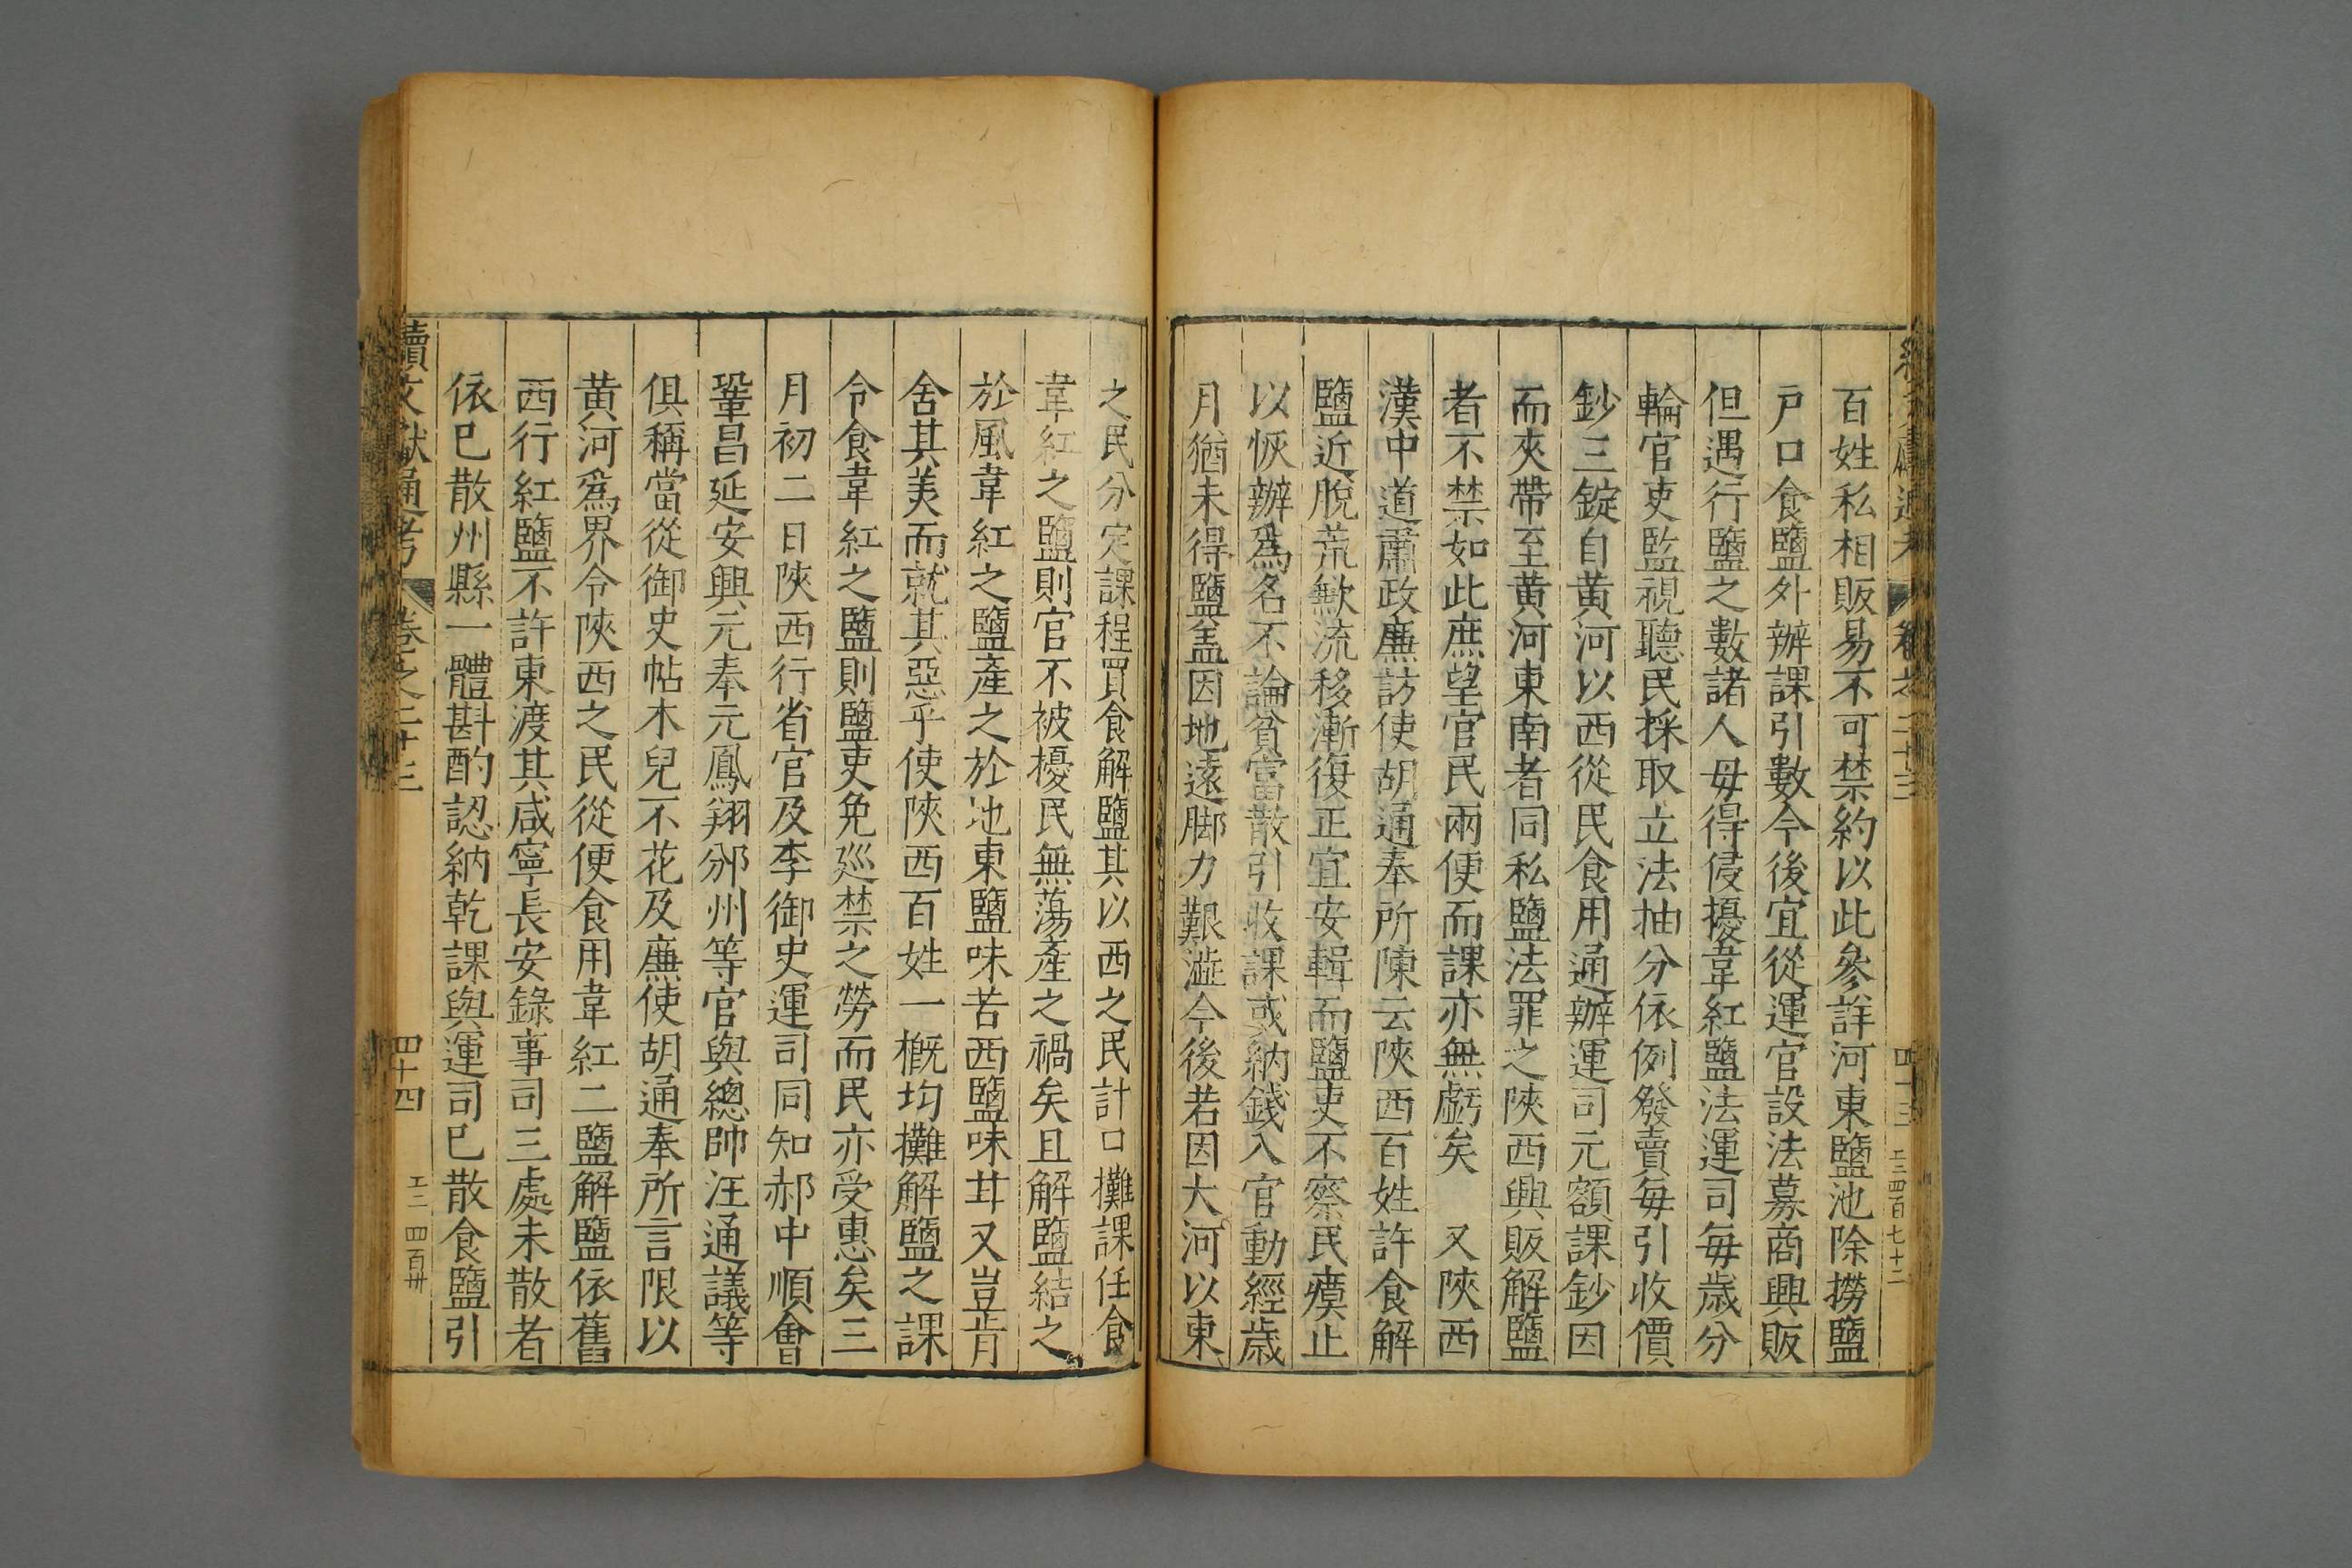 百姓私相販易不可禁約以此參詳河東鹽池除撈鹽
戸口食鹽外辦課引數今後宜從運官設法募商興販
但遇行鹽之數諸人毋得侵擾韋紅鹽法運司每歲分
輪官吏監視聽民採取立法抽分依例發賣每引收價
鈔三錠自黃河以西從民食用通辦運司元額課鈔因
而夾帶至黃河東南者同私鹽法罪之陝西興販解鹽
者不禁如此庶望官民兩便而課亦無虧矣　又陝西
漢中道肅政廉訪使胡通奉所陳云陝西百姓許食解
鹽近脫荒歉流移漸復正宜安輯而鹽吏不察民瘼止
以恢辦爲名不論貧富散引收課或納錢入官動經歲
月猶未得鹽盖因地遠脚力艱澁今後若因大河以東
之民分定課程買食解鹽其以西之民計口攤課任食
韋紅之鹽則官不被擾民無蕩產之禍矣且解鹽結之
於風韋紅之鹽產之於地東鹽味苦西鹽味甘又豈肯
舍其美而就其惡乎使陝西百姓一槪均攤解鹽之課
令食韋紅之鹽則鹽吏免廵禁之勞而民亦受惠矣三
月初二日陝西行省官及李御史運司同知郝中順會
鞏昌延安興元奉元鳳翔邠州等官與總帥汪通議等
俱稱當從御史帖木兒不花及廉使胡通奉所言限以
黃河爲界令陝西之民從便食用韋紅二鹽解鹽依舊
西行紅鹽不許東渡其咸寧長安錄事司三處未散者
依已散州縣一體斟酌認納乾課與運司已散食鹽引
續文獻通考　卷之二十三　四十四